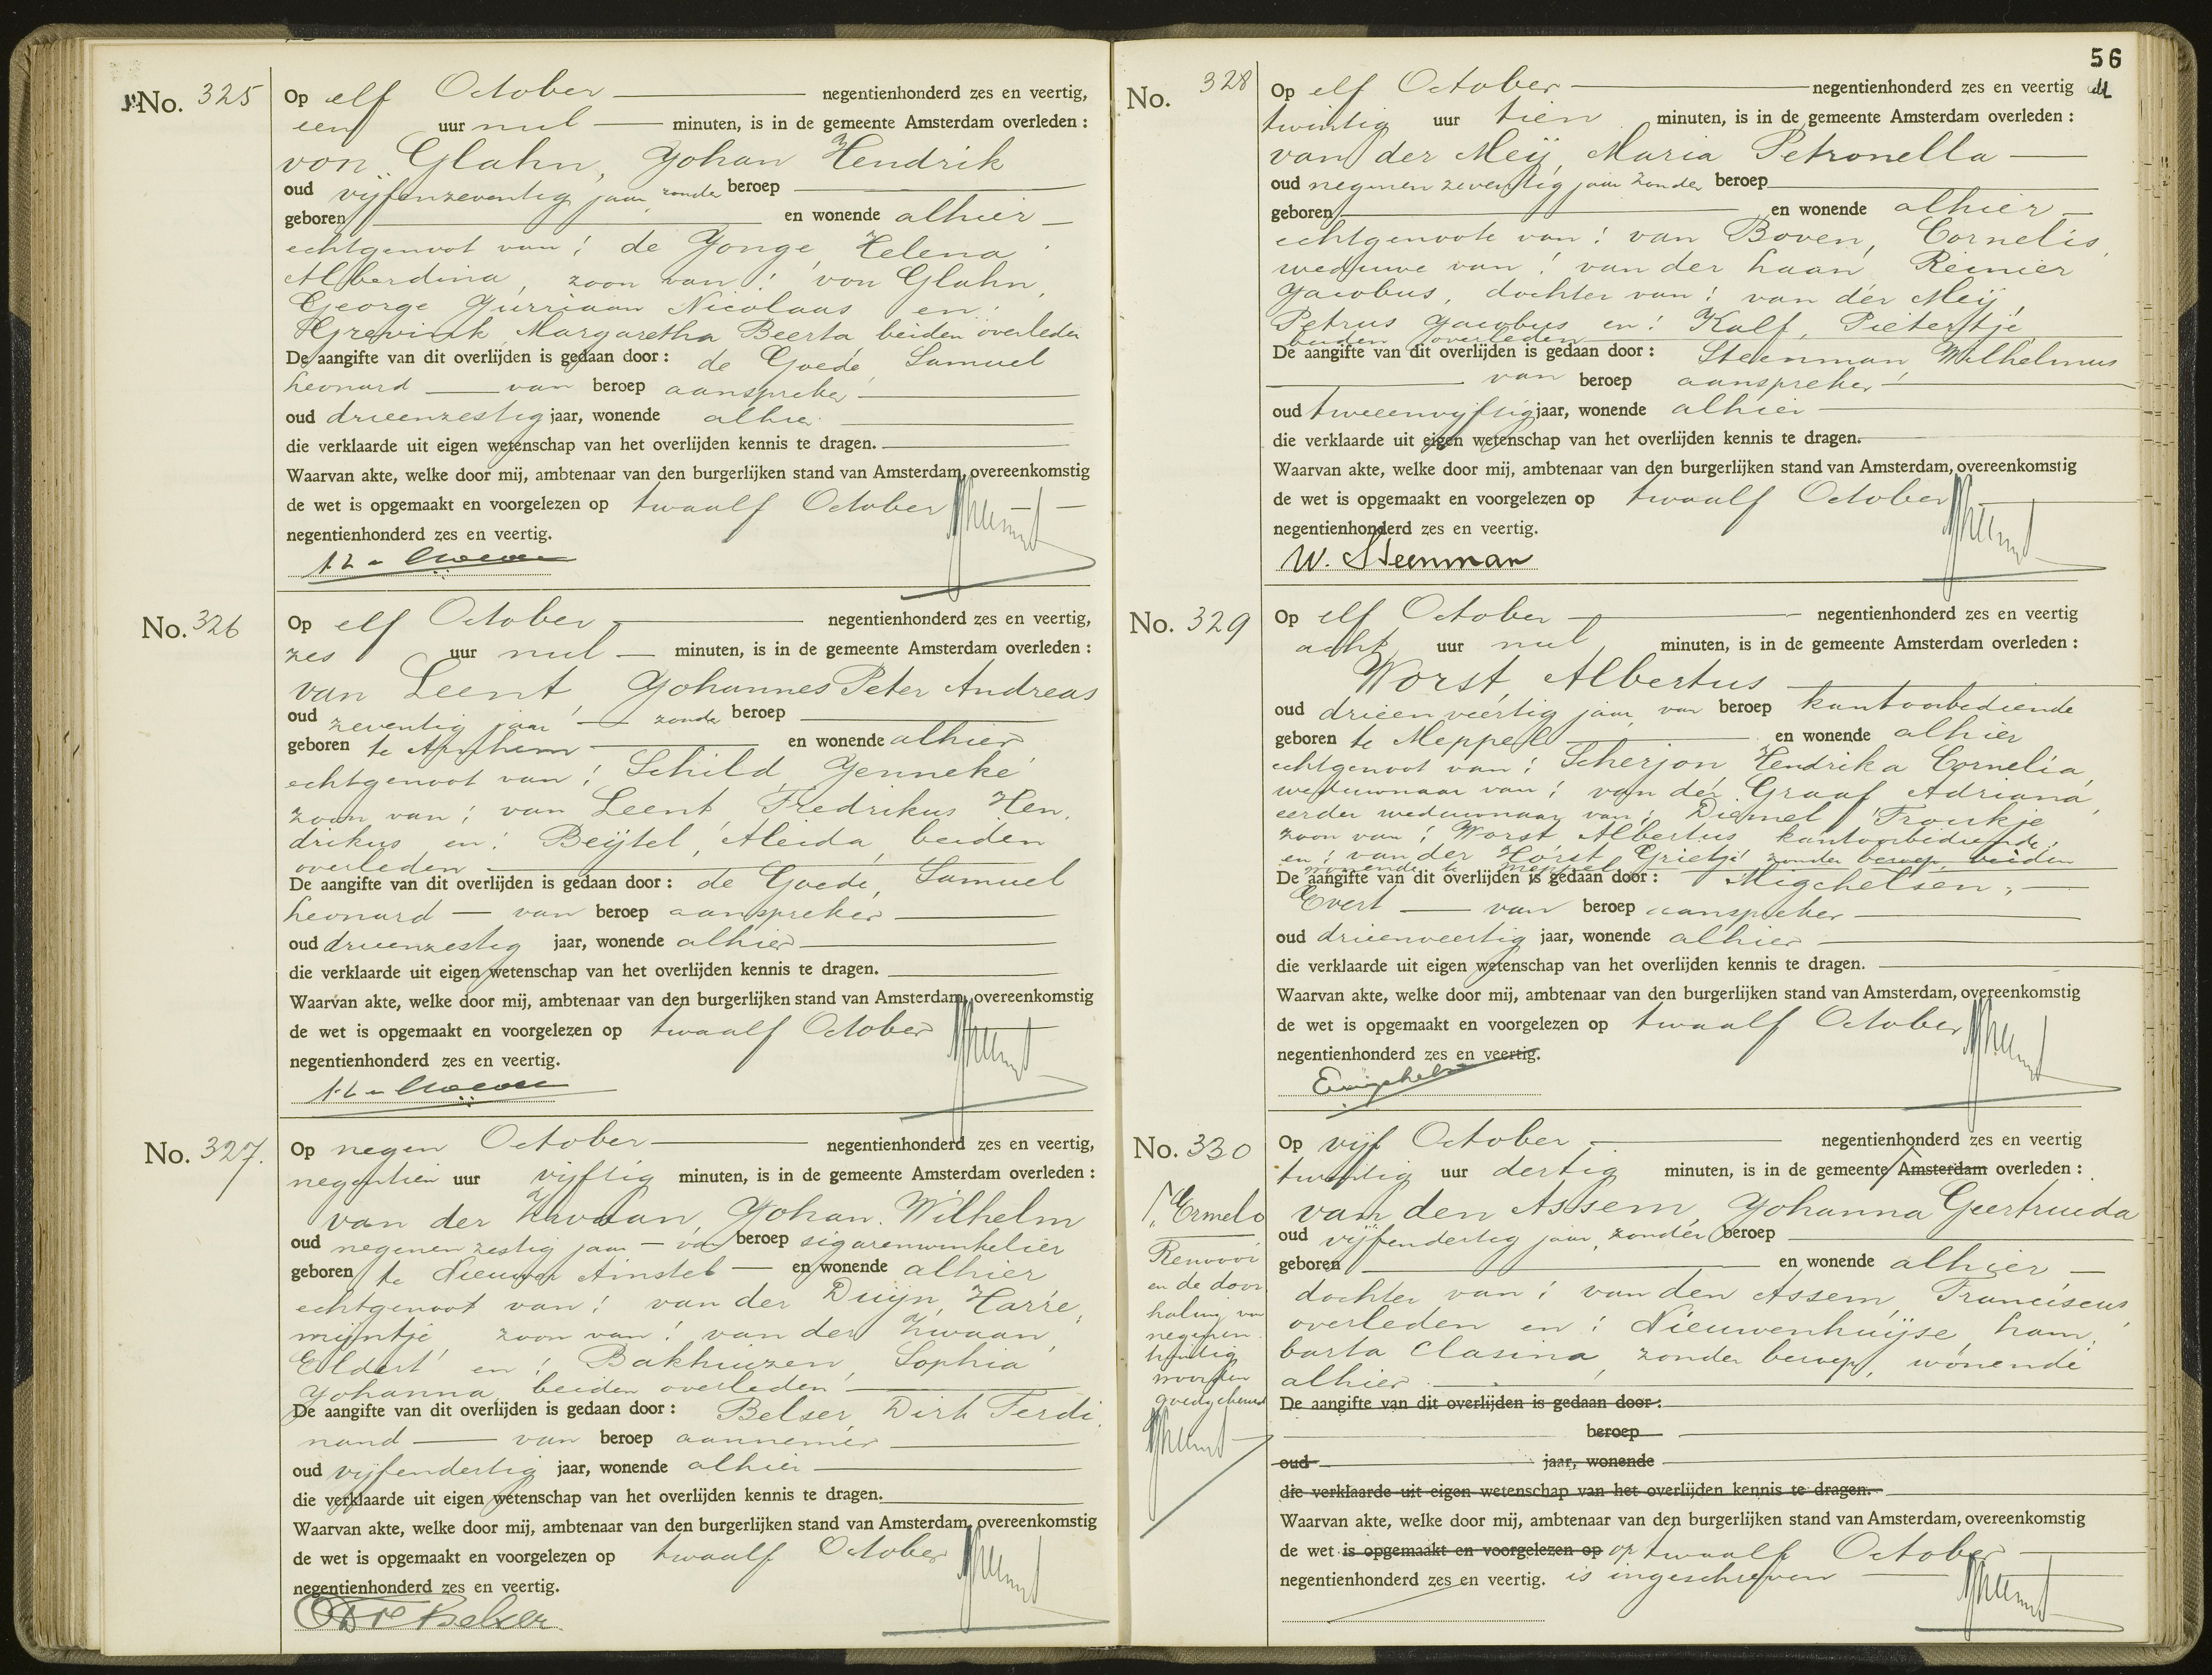 No. 325
Op elf October negentienhonderd zes en veertig,
een uur nul minuten, is in de gemeente Amsterdam overleden :
von Glahn, Johan Hendrik
oud vijfenzeventig jaar, zonder beroep
geboren en wonende alhier
echtgenoot van: de Jonge, Helena
Alberdina, zoon van: von Glahn,
George Jurriaan Nicolaas en:
Grevink, Margaretha Beerta beiden overleden
De aangifte van dit overlijden is gedaan door : de Goede, Samuel
Leonard van beroep aanspreker
oud drieenzestig jaar, wonende alhier
die verklaarde uit eigen wetenschap van het overlijden kennis te dragen.
Waarvan akte, welke door mij, ambtenaar van den burgerlijken stand van Amsterdam, overeenkomstig
de wet is opgemaakt en voorgelezen op twaalf October
negentienhonderd zes en veertig.
No. 326
Op elf October negentienhonderd zes en veertig,
zes uur nul minuten, is in de gemeente Amsterdam overleden :
van Leent, Johannes Peter Andreas
oud zeventig jaar zonder beroep
geboren te Arnhem en wonende alhier
echtgenoot van: Schild, Jenneke
zoon van: van Leent, Fredrikus Hen,
drikus en: Beijtel, Aleida, beiden
overleden
De aangifte van dit overlijden is gedaan door : de Goede, Samuel
Leonard van beroep aanspreker
oud drieenzestig jaar, wonende alhier
die verklaarde uit eigen wetenschap van het overlijden kennis te dragen.
Waarvan akte, welke door mij, ambtenaar van den burgerlijken stand van Amsterdam, overeenkomstig
de wet is opgemaakt en voorgelezen op twaalf October
negentienhonderd zes en veertig.
No. 327.
Op negen October negentienhonderd zes en veertig,
negentien uur vijftig minuten, is in de gemeente Amsterdam overleden :
van der Zwaan, Johan Wilhelm
oud negenenzestig jaar van beroep sigarenwinkelier
geboren te Nieuwer Amstel en wonende alhier
echtgenoot van: van der Duijn, Harre,
mijntje zoon van: van der Zwaan,
Eldert en: Bakhuizen, Sophia
Johanna, beiden overleden
De aangifte van dit overlijden is gedaan door : Belser, Dirk Ferdi,
nand van beroep aannemer
oud vijfendertig jaar, wonende alhier
die verklaarde uit eigen wetenschap van het overlijden kennis te dragen.
Waarvan akte, welke door mij, ambtenaar van den burgerlijken stand van Amsterdam, overeenkomstig
de wet is opgemaakt en voorgelezen op twaalf October
negentienhonderd zes en veertig.
Belser
56
No. 328
Op elf October negentienhonderd zes en veertig
twintig uur tien minuten, is in de gemeente Amsterdam overleden :
van der Meij, Maria Petronella
oud negenenzeventig jaar zonder beroep
geboren en wonende alhier
echtgenoote van: van Boven, Cornelis,
weduwe van: van der Laan, Reinier
Jacobus, dochter van: van der Meij,
Petrus Jacobus en: Kalf, Pietertje,
beiden overleden
De aangifte van dit overlijden is gedaan door : Steenman, Wilhelmus
van beroep aanspreker
oud tweeenvijftig jaar, wonende alhier
die verklaarde uit eigen wetenschap van het overlijden kennis te dragen.
Waarvan akte, welke door mij, ambtenaar van den burgerlijken stand van Amsterdam, overeenkomstig
de wet is opgemaakt en voorgelezen op twaalf October
negentienhonderd zes en veertig.
W. Steenman
No. 329
Op elf October negentienhonderd zes en veertig
acht uur nul minuten, is in de gemeente Amsterdam overleden :
Worst, Albertus
oud drieenveertig jaar, van beroep kantoorbediende
geboren te Meppel en wonende alhier
echtgenoot van: Scherjon Hendrika Cornelia,
weduwnaar van: van der Graaf Adriana,
eerder weduwnaar van: Diemel, Froukje
zoon van: Worst Albertus kantoorbediende
en: van der Horst, Grietje zonder beroep, beiden
wonende te Meppel
De aangifte van dit overlijden is gedaan door : Migchelsen,
Evert van beroep aanspreker
oud drieenveertig jaar, wonende alhier
die verklaarde uit eigen wetenschap van het overlijden kennis te dragen.
Waarvan akte, welke door mij, ambtenaar van den burgerlijken stand van Amsterdam, overeenkomstig
de wet is opgemaakt en voorgelezen op twaalf October
negentienhonderd zes en veertig.
No. 330
Op vijf October negentienhonderd zes en veertig
twintig uur dertig minuten, is in de gemeente Amsterdam overleden :
van den Assem, Johanna Geertruida
oud vijfendertig jaar, zonder beroep
geboren en wonende alhier
dochter van: van den Assem, Franciscus
overleden en: Nieuwenhuijse, Lam,
barta Clasina, zonder beroep, wonende
alhier
De aangifte van dit overlijden is gedaan door :
beroep
oud jaar, wonende
die verklaarde uit eigen wetenschap van het overlijden kennis te dragen.
Waarvan akte, welke door mij, ambtenaar van den burgerlijken stand van Amsterdam, overeenkomstig
de wet is opgemaakt en voorgelezen op op twaalf October
negentienhonderd zes en veertig. is ingeschreven
Ermelo
Renvooi
en de door
haling van
negenen
twintig
woorden
goedgekeurd